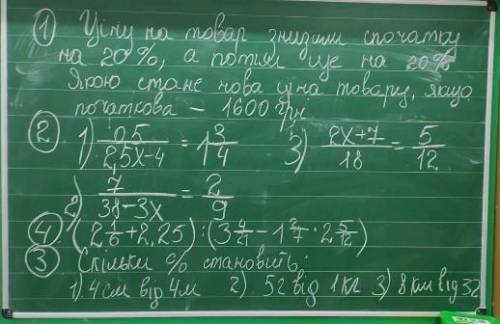 ① Ціну на товар знизили спочатку
на 20%, а потім ще на 20%
Якою стане нова ціна товару, якщо
початкова – 1600 грн
② 1) 0,5/(2,5x-4) = 1 3/4 3) (2x+7)/18 = 5/12
2) 7/(38-3x) = 2/9
④ (2 1/6+2,25):(3 4/21-1 2/7·2 5/12)
③ Скільки % становить:
1) 4см від 4м 2) 52 від 1кг 3) 8км від 32